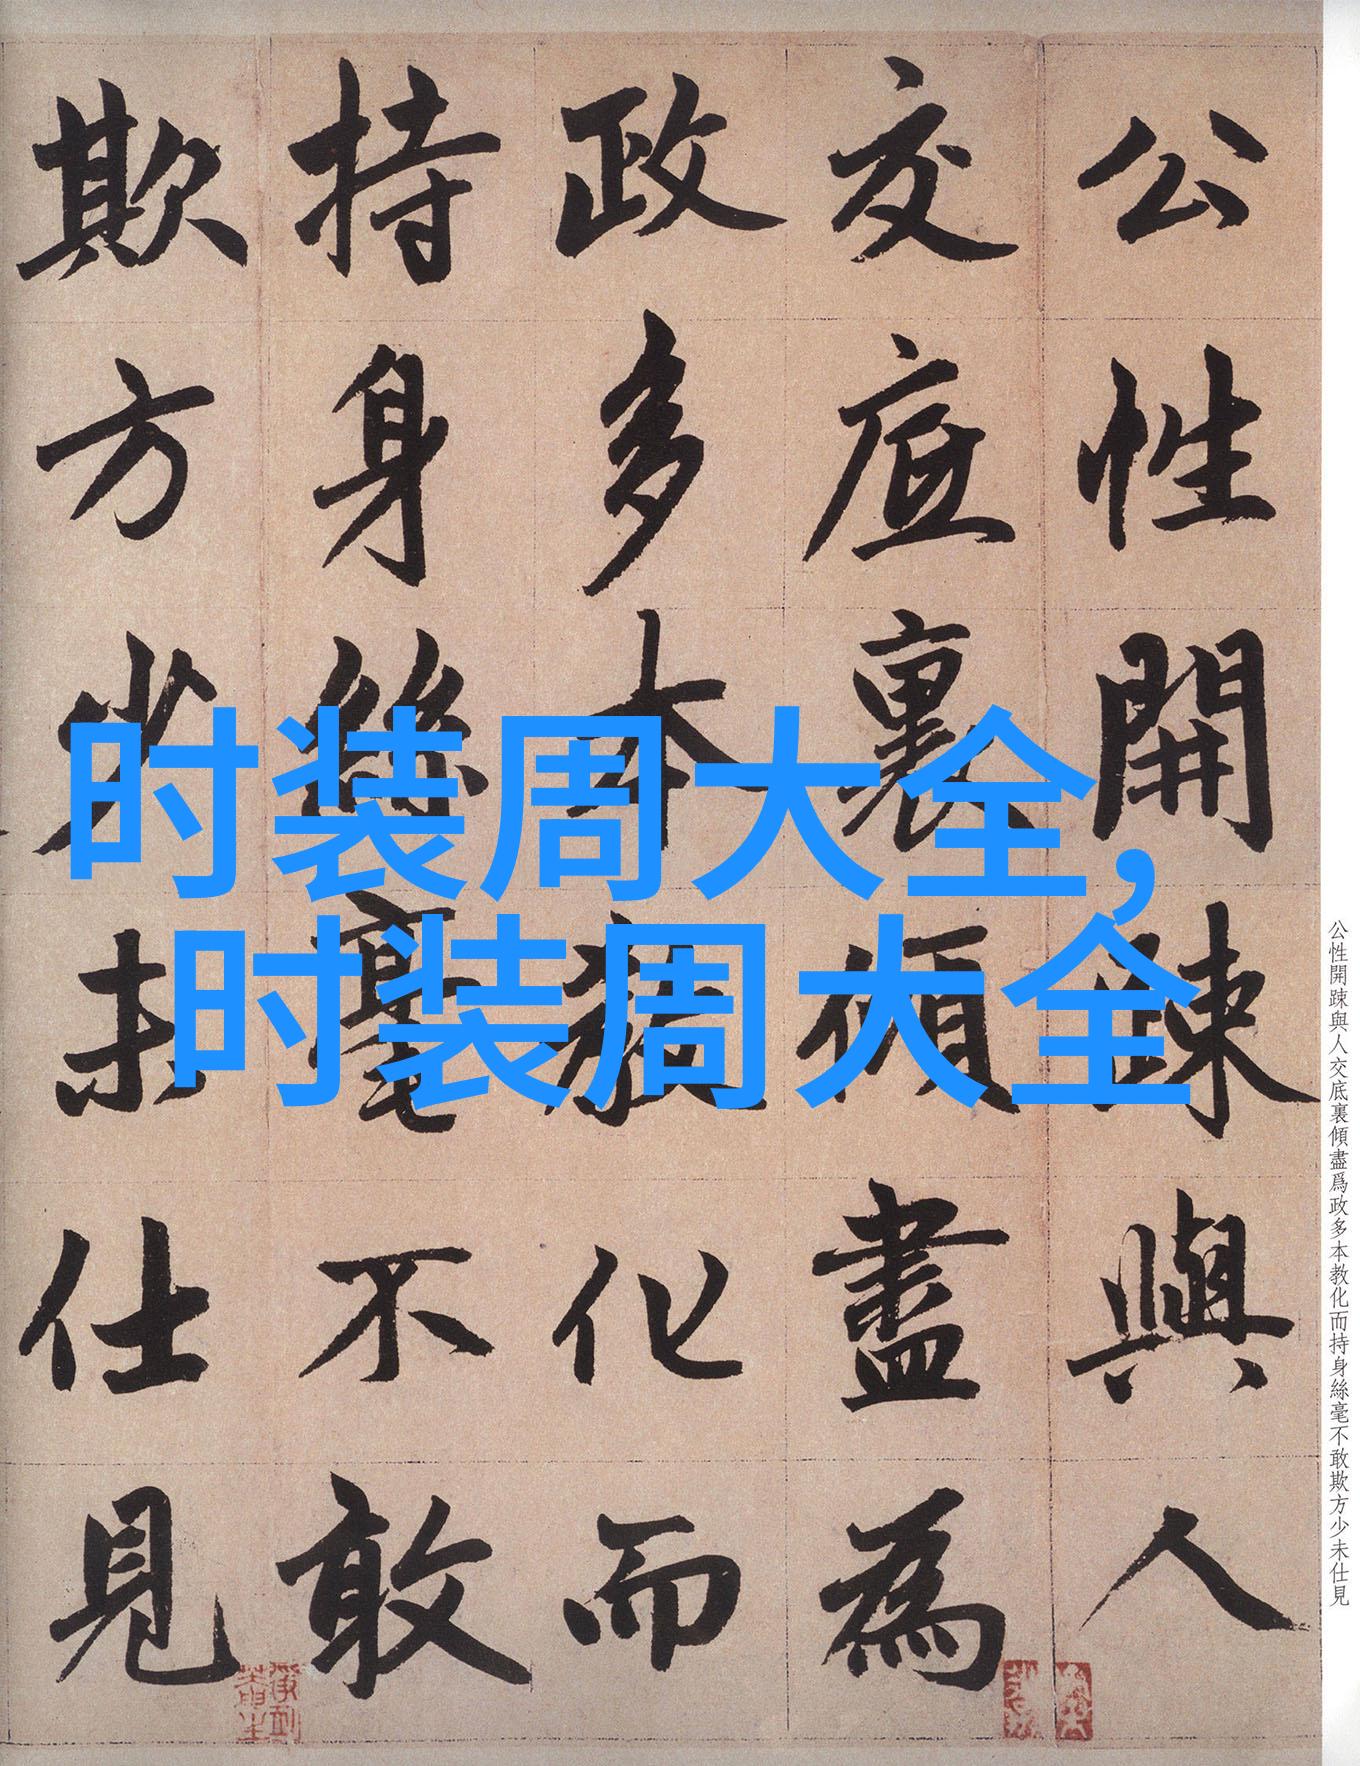 时装周大全，
时装周大全
公性開踈與人
交底裏傾盡為
政多本教化而
持身絲毫不敢
欺方少未仕見
公性開踈與人交底裏傾盡爲政多本教化而持身絲毫不敢欺方少未仕見